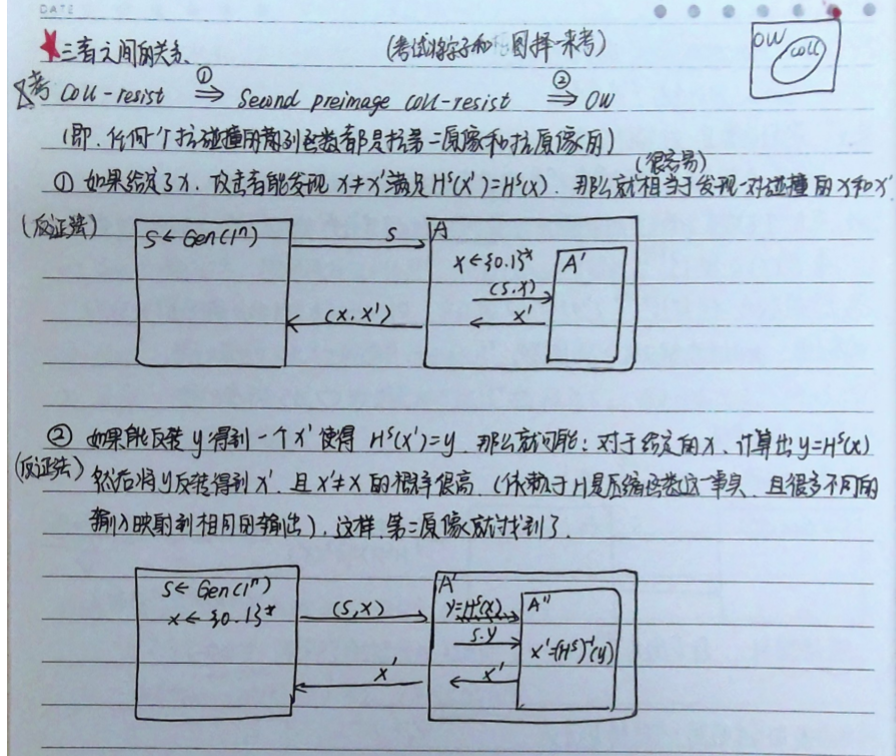 DATE
★三者之间的关系.
(考试将字和图择一来考)
OW
coll
考 Coll-resist ①⇒ Second preimage coll-resist ②⇒ OW
(即.任何一个抗碰撞的散列函数都是抗第二原像和抗原像的)
(很容易)
① 如果给定了x, 攻击者能发现 x≠x'满足H^s(x')=H^s(x). 那么就相当于发现一对碰撞的x和x'
(反证法)
S←Gen(1^n)
S
A
x←{0.1}*
A'
(S.x)
x'
(x.x')
② 如果能反转y得到一个x'使得 H^s(x')=y. 那么就可能: 对于给定的x, 计算出y=H^s(x)
(反证法) 然后将y反转得到x'. 且x'≠x的概率很高. (依赖于H是压缩函数这一事实. 且很多不同的
输入映射到相同的输出). 这样, 第二原像就找到了.
S←Gen(1^n)
x←{0.1}*
(S,x)
A'
y=H^s(x)
A''
S.y
x'=(H^s)^-1(y)
x'
x'